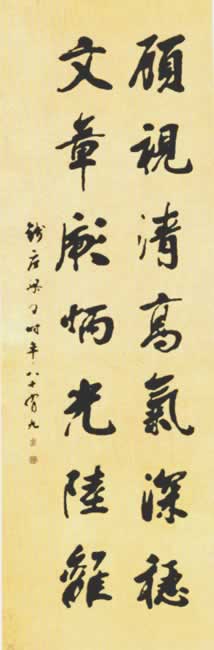 顧視清高氣深穩
文章彪炳光陸離
時年八十有九